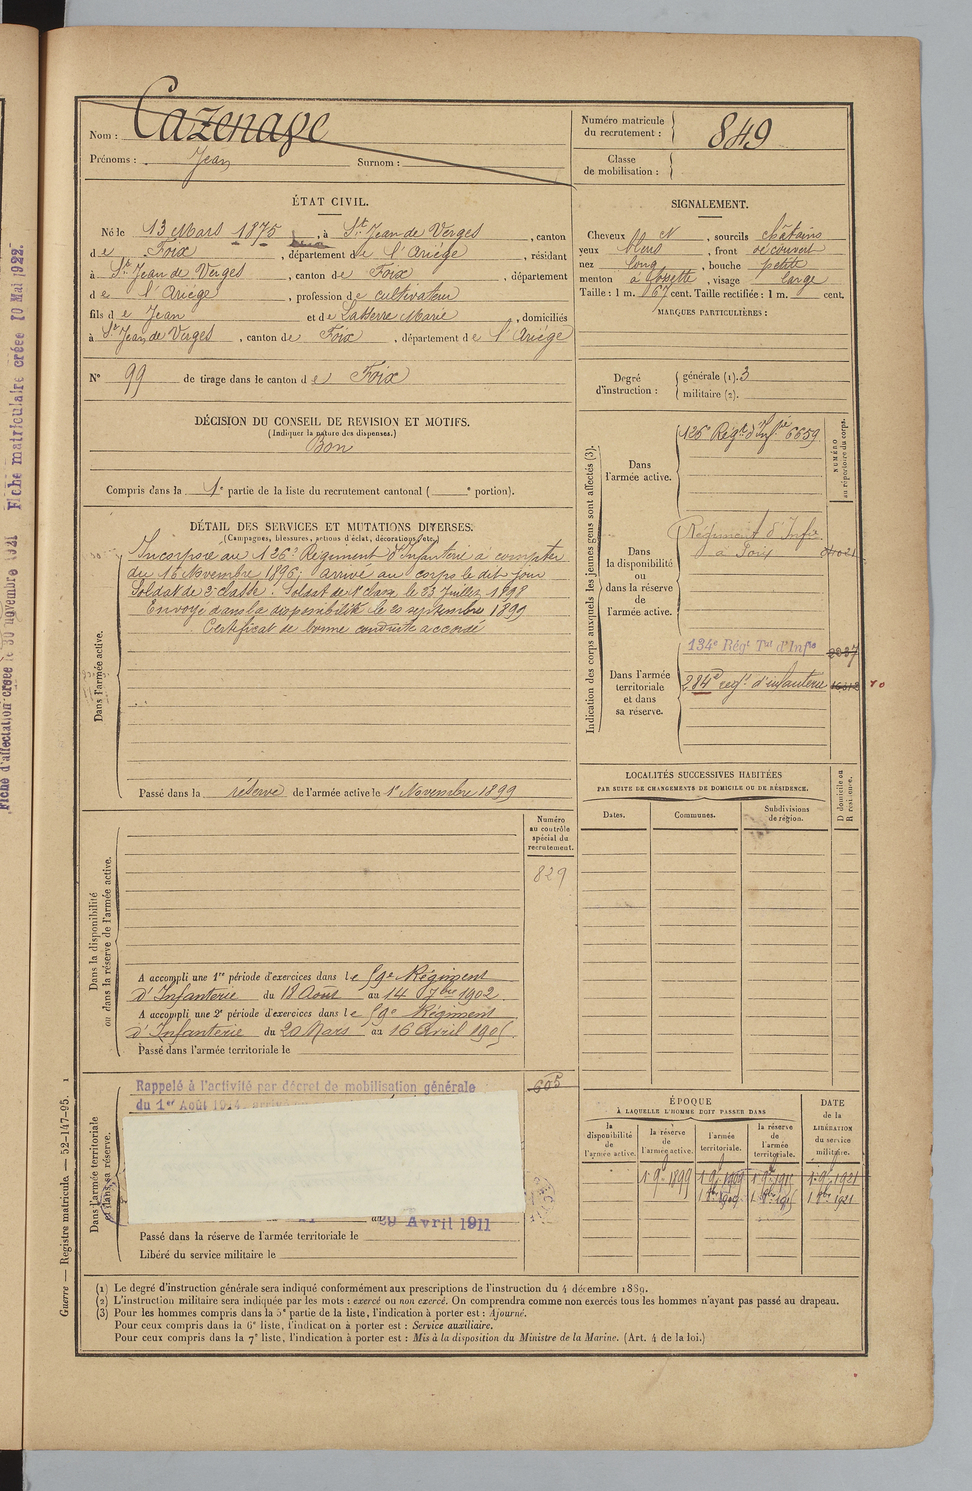 Fiche d'affectation créée le 30 novembre 1921 Fiche matriculaire créée 10 Mai 1922.
Nom : Cazenave
Prénoms : Jean Surnom :
Numéro matricule du recrutement : 849
Classe de mobilisation :
ÉTAT CIVIL.
Né le 13 Mars 1875, à St Jean de Verges, canton
de Foix, département de l'Ariège, résidant
à St Jean de Verges, canton de Foix, département
de l'Ariège, profession de cultivateur
fils de Jean et de Laserre Marie, domiciliés
à St Jean de Verges, canton de Foix, département de l'Ariège
N° 99 de tirage dans le canton de Foix
DÉCISION DU CONSEIL DE REVISION ET MOTIFS.
(Indiquer la nature des dispenses.)
Bon
Compris dans la 1e partie de la liste du recrutement cantonal ( e portion).
DÉTAIL DES SERVICES ET MUTATIONS DIVERSES.
(Campagnes, blessures, actions d'éclat, décorations, etc.)
Dans l'armée active.
Incorporé au 126e Régiment d'Infanterie à compter
du 16 Novembre 1896; arrivé au corps le dit jour
Soldat de 2e classe. Soldat de 1e classe le 23 Juillet 1898
Envoyé dans la disponibilité le 20 septembre 1899
Certificat de bonne conduite accordé
Passé dans la réserve de l'armée active le 1er Novembre 1899
Dans la disponibilité ou dans la réserve de l'armée active.
Numéro au contrôle spécial du recrutement.
829
A accompli une 1re période d'exercices dans le 59e Régiment
d'Infanterie du 18 Août au 14 7bre 1902
A accompli une 2e période d'exercices dans le 59e Régiment
d'Infanterie du 20 Mars au 16 Avril 1905
Passé dans l'armée territoriale le
Dans l'armée territoriale et dans sa réserve.
605
Rappelé à l'activité par décret de mobilisation générale
du 1er Août 1914
au 29 Avril 1911
Passé dans la réserve de l'armée territoriale le
Libéré du service militaire le
SIGNALEMENT.
Cheveux et N, sourcils châtains
yeux bleus, front découvert
nez long, bouche petite
menton à fossette, visage large
Taille : 1 m. 67 cent. Taille rectifiée : 1 m. cent.
MARQUES PARTICULIÈRES :
Degré d'instruction : générale (1). 3
militaire (2).
Indication des corps auxquels les jeunes gens sont affectés (3).
NUMÉRO au répertoire du corps.
Dans l'armée active. 126e Régt d'Infie 6659
Dans la disponibilité ou dans la réserve de l'armée active. Régiment d'Infie à Foix
Dans l'armée territoriale et dans sa réserve. 134e Régt Tal d'Infie
284e regt d'infanterie
LOCALITÉS SUCCESSIVES HABITÉES
PAR SUITE DE CHANGEMENTS DE DOMICILE OU DE RÉSIDENCE.
Dates. Communes. Subdivisions de région. D domicile ou R résidence.
ÉPOQUE
À LAQUELLE L'HOMME DOIT PASSER DANS
la disponibilité de l'armée active. la réserve de l'armée active. l'armée territoriale. la réserve de l'armée territoriale.
DATE de la LIBÉRATION du service militaire.
1 9bre 1899 1 9bre 1909 1 9bre 1915 1 9bre 1921
Guerre — Registre matricule. — 52-147-95. 1
(1) Le degré d'instruction générale sera indiqué conformément aux prescriptions de l'instruction du 4 décembre 1889.
(2) L'instruction militaire sera indiquée par les mots : exercé ou non exercé. On comprendra comme non exercés tous les hommes n'ayant pas passé au drapeau.
(3) Pour les hommes compris dans la 5e partie de la liste, l'indication à porter est : Ajourné.
Pour ceux compris dans la 6e liste, l'indication à porter est : Service auxiliaire.
Pour ceux compris dans la 7e liste, l'indication à porter est : Mis à la disposition du Ministre de la Marine. (Art. 4 de la loi.)